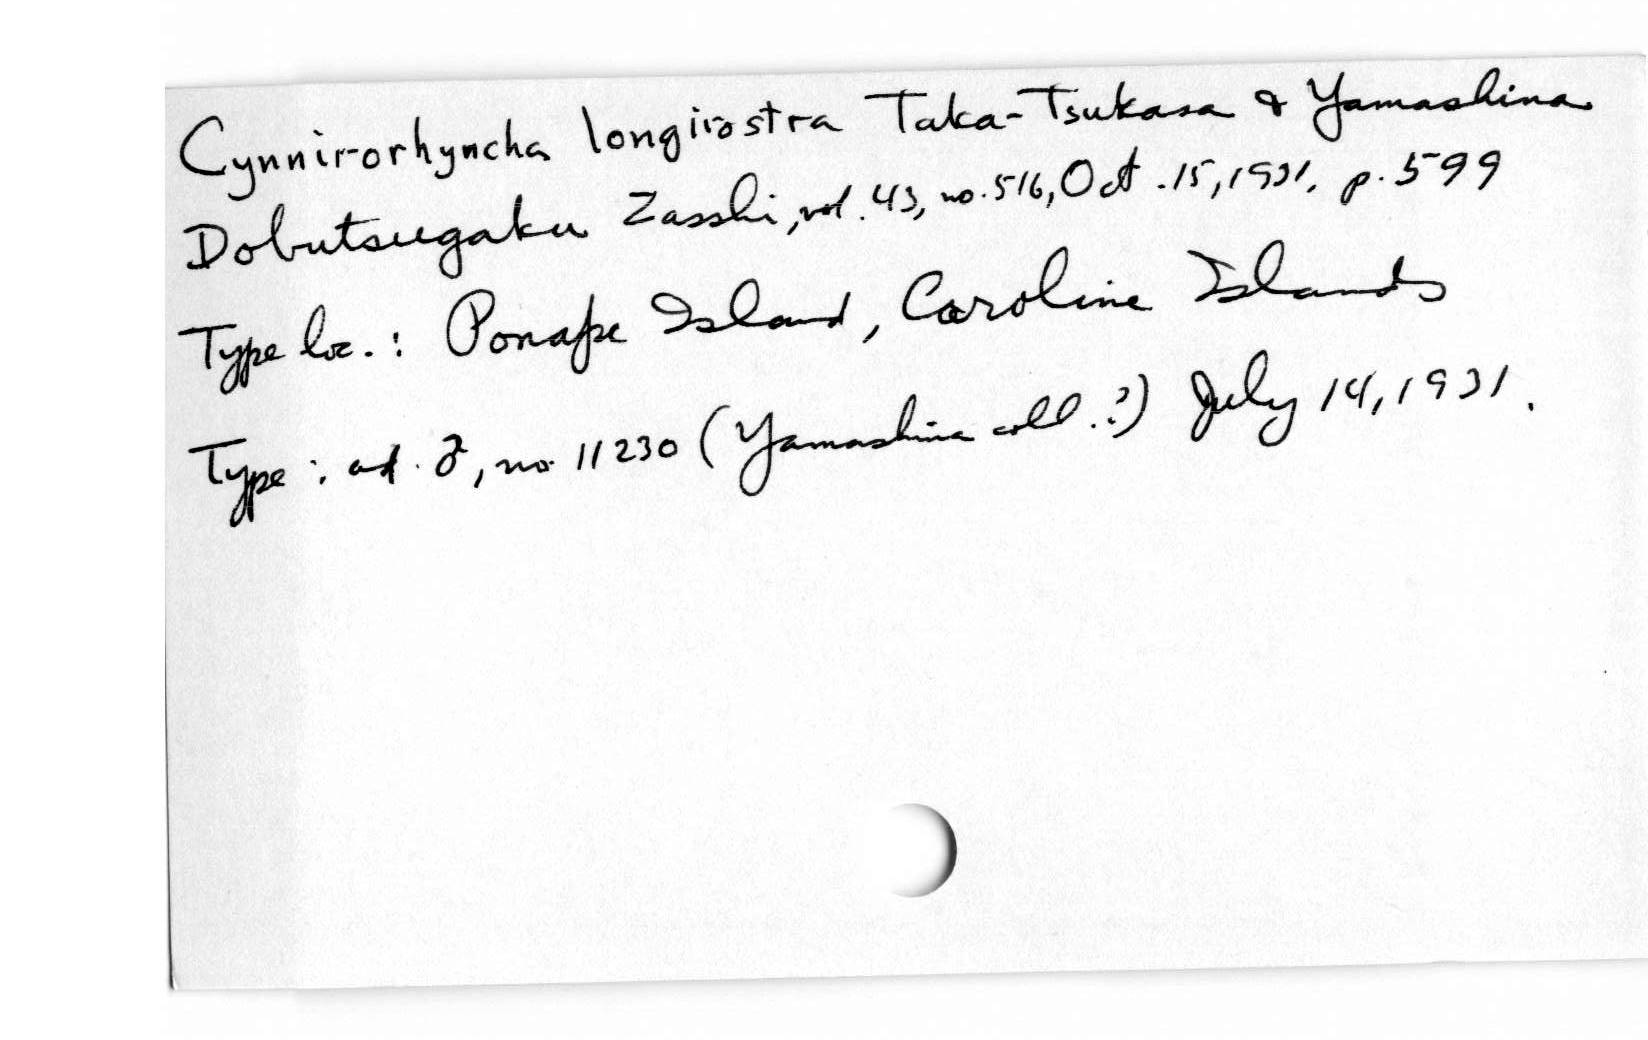 Cynnirorhyncha longirostra Taka-Tsukasa & Yamashina
Dobutsugaku Zasshi, vol. 43, no. 516, Oct. 15, 1931, p. 599
Type loc.: Ponape Island, Caroline Islands
Type: ad. ♂, no. 11230 (Yamashina coll.?) July 14, 1931.